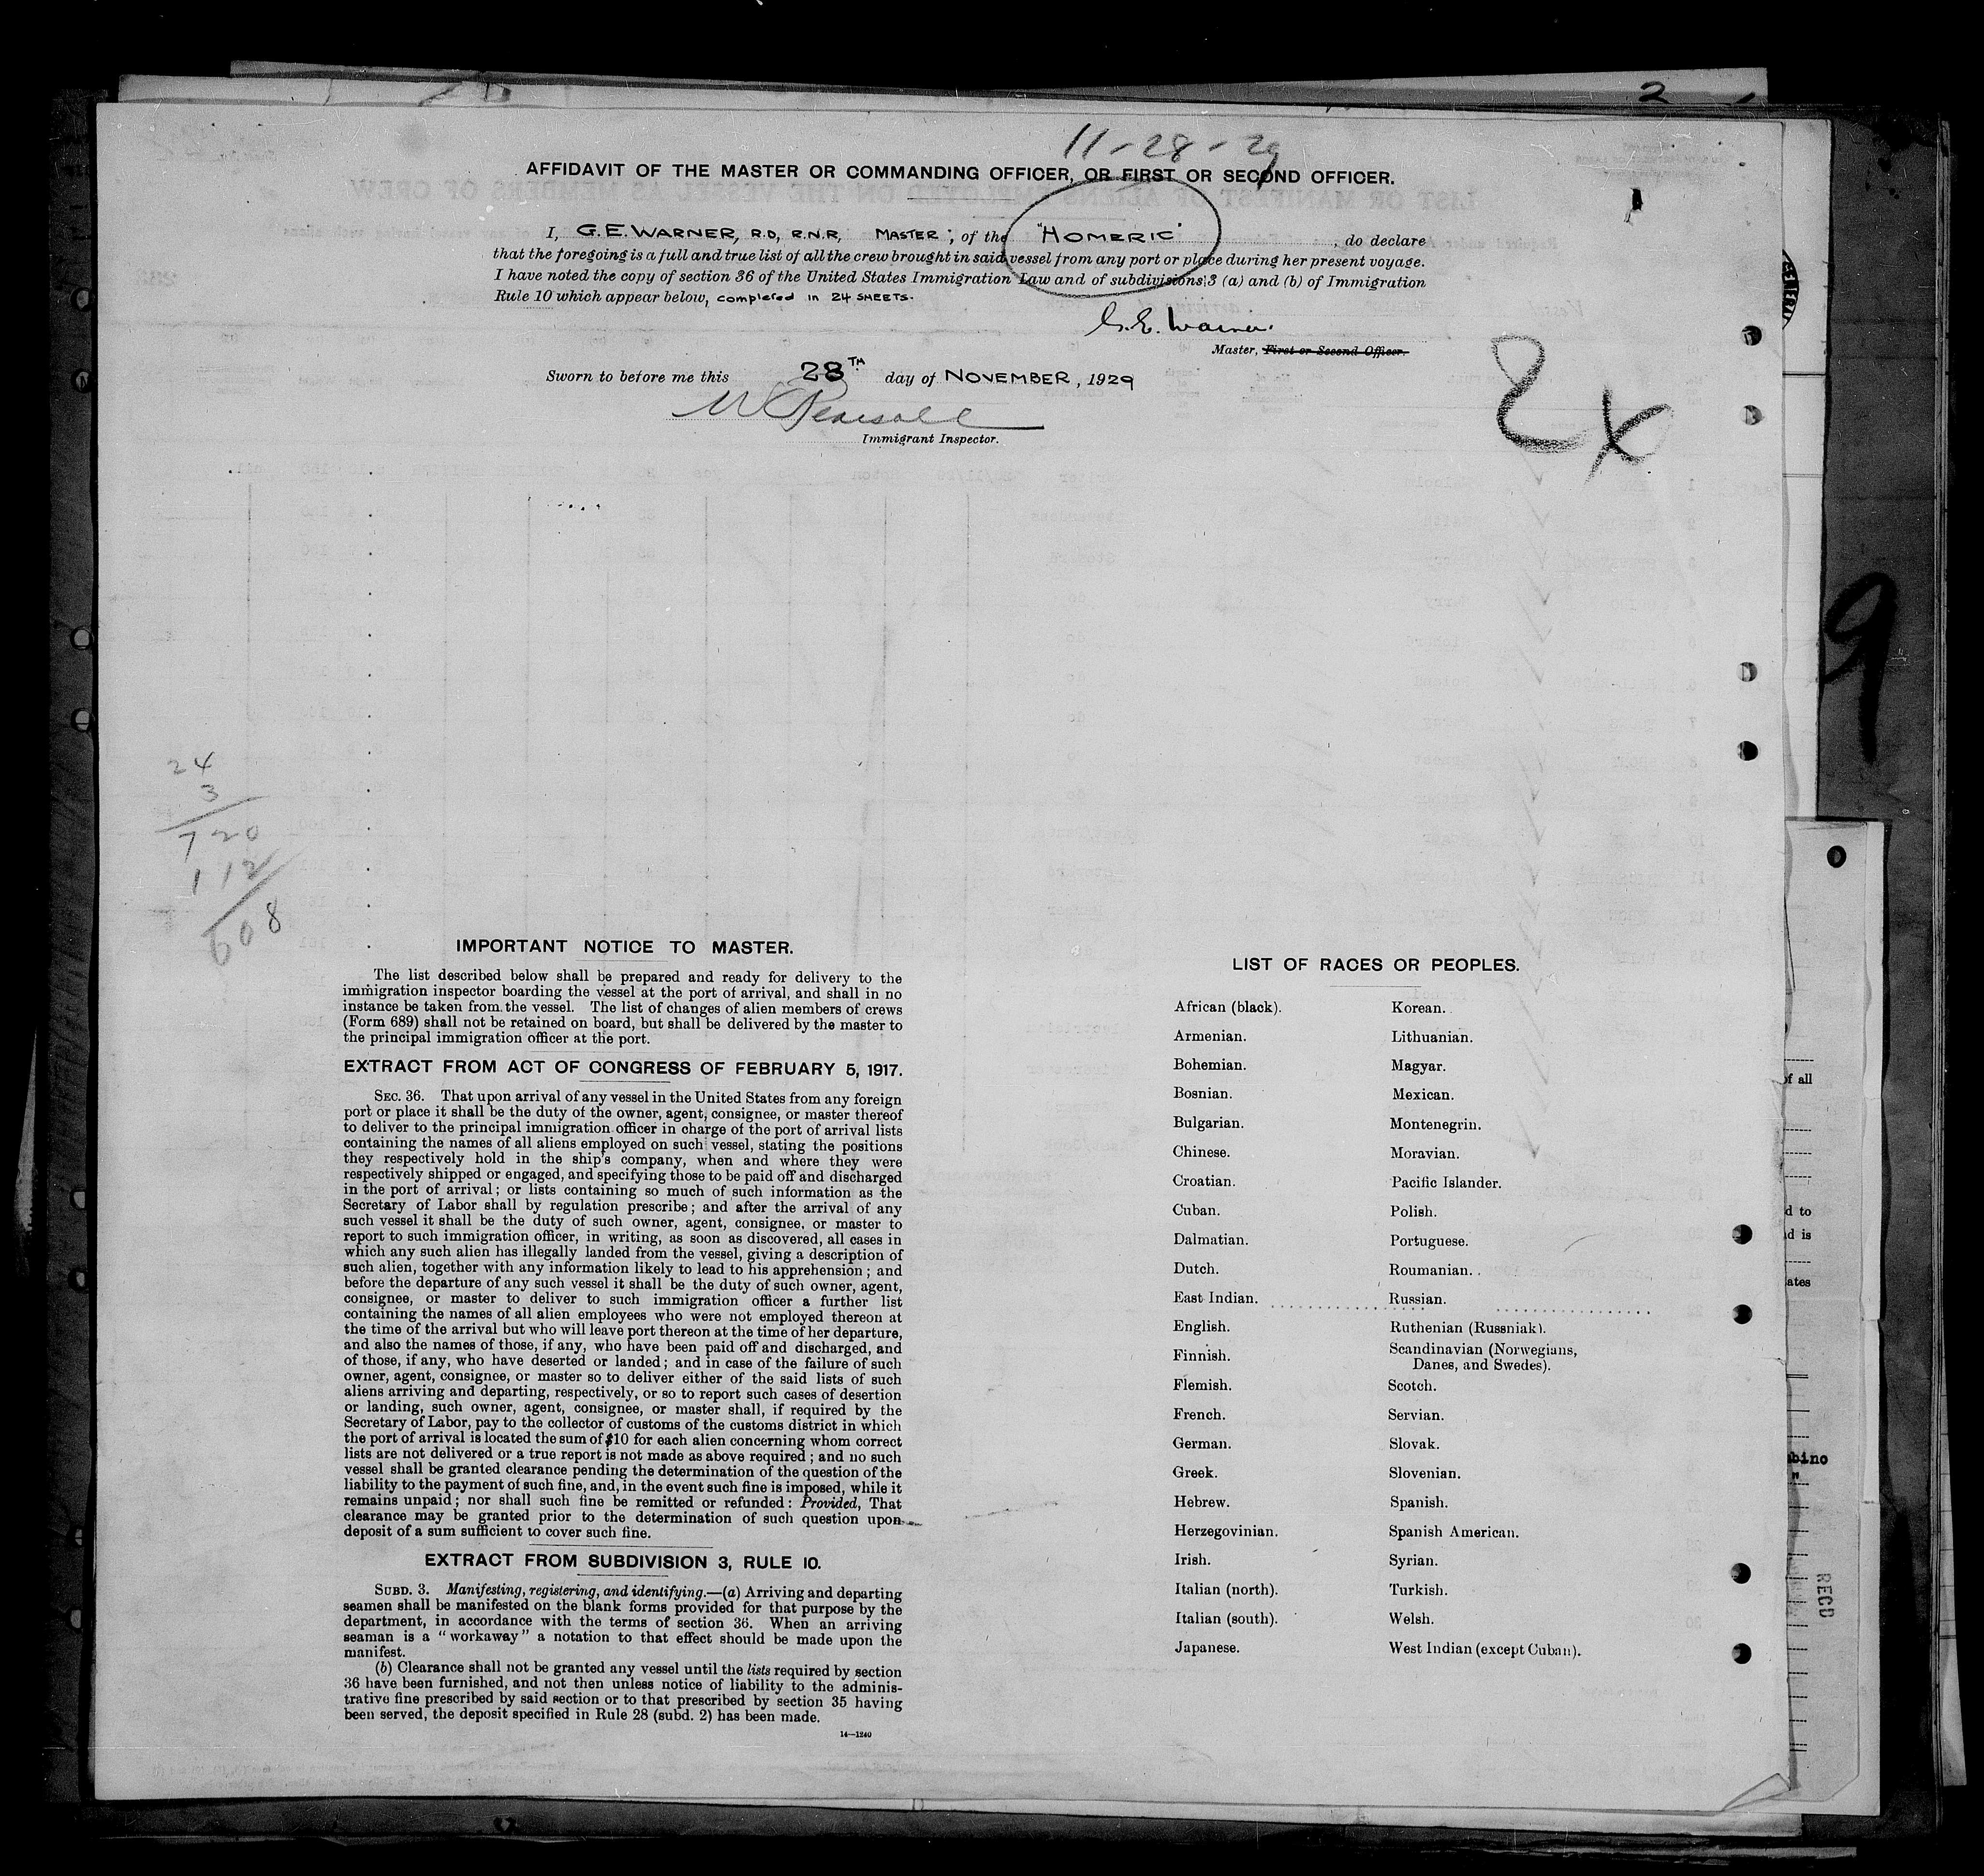 2
11-28-29
AFFIDAVIT OF THE MASTER OR COMMANDING OFFICER, OR FIRST OR SECOND OFFICER.
I, G.E. WARNER, R.D, R.N.R, MASTER; of the "HOMERIC", do declare
that the foregoing is a full and true list of all the crew brought in said vessel from any port or place during her present voyage.
I have noted the copy of section 36 of the United States Immigration Law and of subdivisions 3 (a) and (b) of Immigration
Rule 10 which appear below, completed in 24 SHEETS.
G.E. Warner.
Master, First or Second Officer.
Sworn to before me this 28TH day of NOVEMBER, 1929
W Pearsall
Immigrant Inspector.
2x
9
24
3
720
112
608
IMPORTANT NOTICE TO MASTER.
The list described below shall be prepared and ready for delivery to the
immigration inspector boarding the vessel at the port of arrival, and shall in no
instance be taken from the vessel. The list of changes of alien members of crews
(Form 689) shall not be retained on board, but shall be delivered by the master to
the principal immigration officer at the port.
EXTRACT FROM ACT OF CONGRESS OF FEBRUARY 5, 1917.
SEC. 36. That upon arrival of any vessel in the United States from any foreign
port or place it shall be the duty of the owner, agent, consignee, or master thereof
to deliver to the principal immigration officer in charge of the port of arrival lists
containing the names of all aliens employed on such vessel, stating the positions
they respectively hold in the ship's company, when and where they were
respectively shipped or engaged, and specifying those to be paid off and discharged
in the port of arrival; or lists containing so much of such information as the
Secretary of Labor shall by regulation prescribe; and after the arrival of any
such vessel it shall be the duty of such owner, agent, consignee, or master to
report to such immigration officer, in writing, as soon as discovered, all cases in
which any such alien has illegally landed from the vessel, giving a description of
such alien, together with any information likely to lead to his apprehension; and
before the departure of any such vessel it shall be the duty of such owner, agent,
consignee, or master to deliver to such immigration officer a further list
containing the names of all alien employees who were not employed thereon at
the time of the arrival but who will leave port thereon at the time of her departure,
and also the names of those, if any, who have been paid off and discharged, and
of those, if any, who have deserted or landed; and in case of the failure of such
owner, agent, consignee, or master so to deliver either of the said lists of such
aliens arriving and departing, respectively, or so to report such cases of desertion
or landing, such owner, agent, consignee, or master shall, if required by the
Secretary of Labor, pay to the collector of customs of the customs district in which
the port of arrival is located the sum of $10 for each alien concerning whom correct
lists are not delivered or a true report is not made as above required; and no such
vessel shall be granted clearance pending the determination of the question of the
liability to the payment of such fine, and, in the event such fine is imposed, while it
remains unpaid; nor shall such fine be remitted or refunded: Provided, That
clearance may be granted prior to the determination of such question upon
deposit of a sum sufficient to cover such fine.
EXTRACT FROM SUBDIVISION 3, RULE 10.
SUBD. 3. Manifesting, registering, and identifying.—(a) Arriving and departing
seamen shall be manifested on the blank forms provided for that purpose by the
department, in accordance with the terms of section 36. When an arriving
seaman is a "workaway" a notation to that effect should be made upon the
manifest.
(b) Clearance shall not be granted any vessel until the lists required by section
36 have been furnished, and not then unless notice of liability to the adminis-
trative fine prescribed by said section or to that prescribed by section 35 having
been served, the deposit specified in Rule 28 (subd. 2) has been made.
14—1240
LIST OF RACES OR PEOPLES.
African (black). Korean.
Armenian. Lithuanian.
Bohemian. Magyar.
Bosnian. Mexican.
Bulgarian. Montenegrin.
Chinese. Moravian.
Croatian. Pacific Islander.
Cuban. Polish.
Dalmatian. Portuguese.
Dutch. Roumanian.
East Indian. Russian.
English. Ruthenian (Russniak).
Finnish. Scandinavian (Norwegians,
Danes, and Swedes).
Flemish. Scotch.
French. Servian.
German. Slovak.
Greek. Slovenian.
Hebrew. Spanish.
Herzegovinian. Spanish American.
Irish. Syrian.
Italian (north). Turkish.
Italian (south). Welsh.
Japanese. West Indian (except Cuban).
of all
d to
d is
ates
bino
RECD